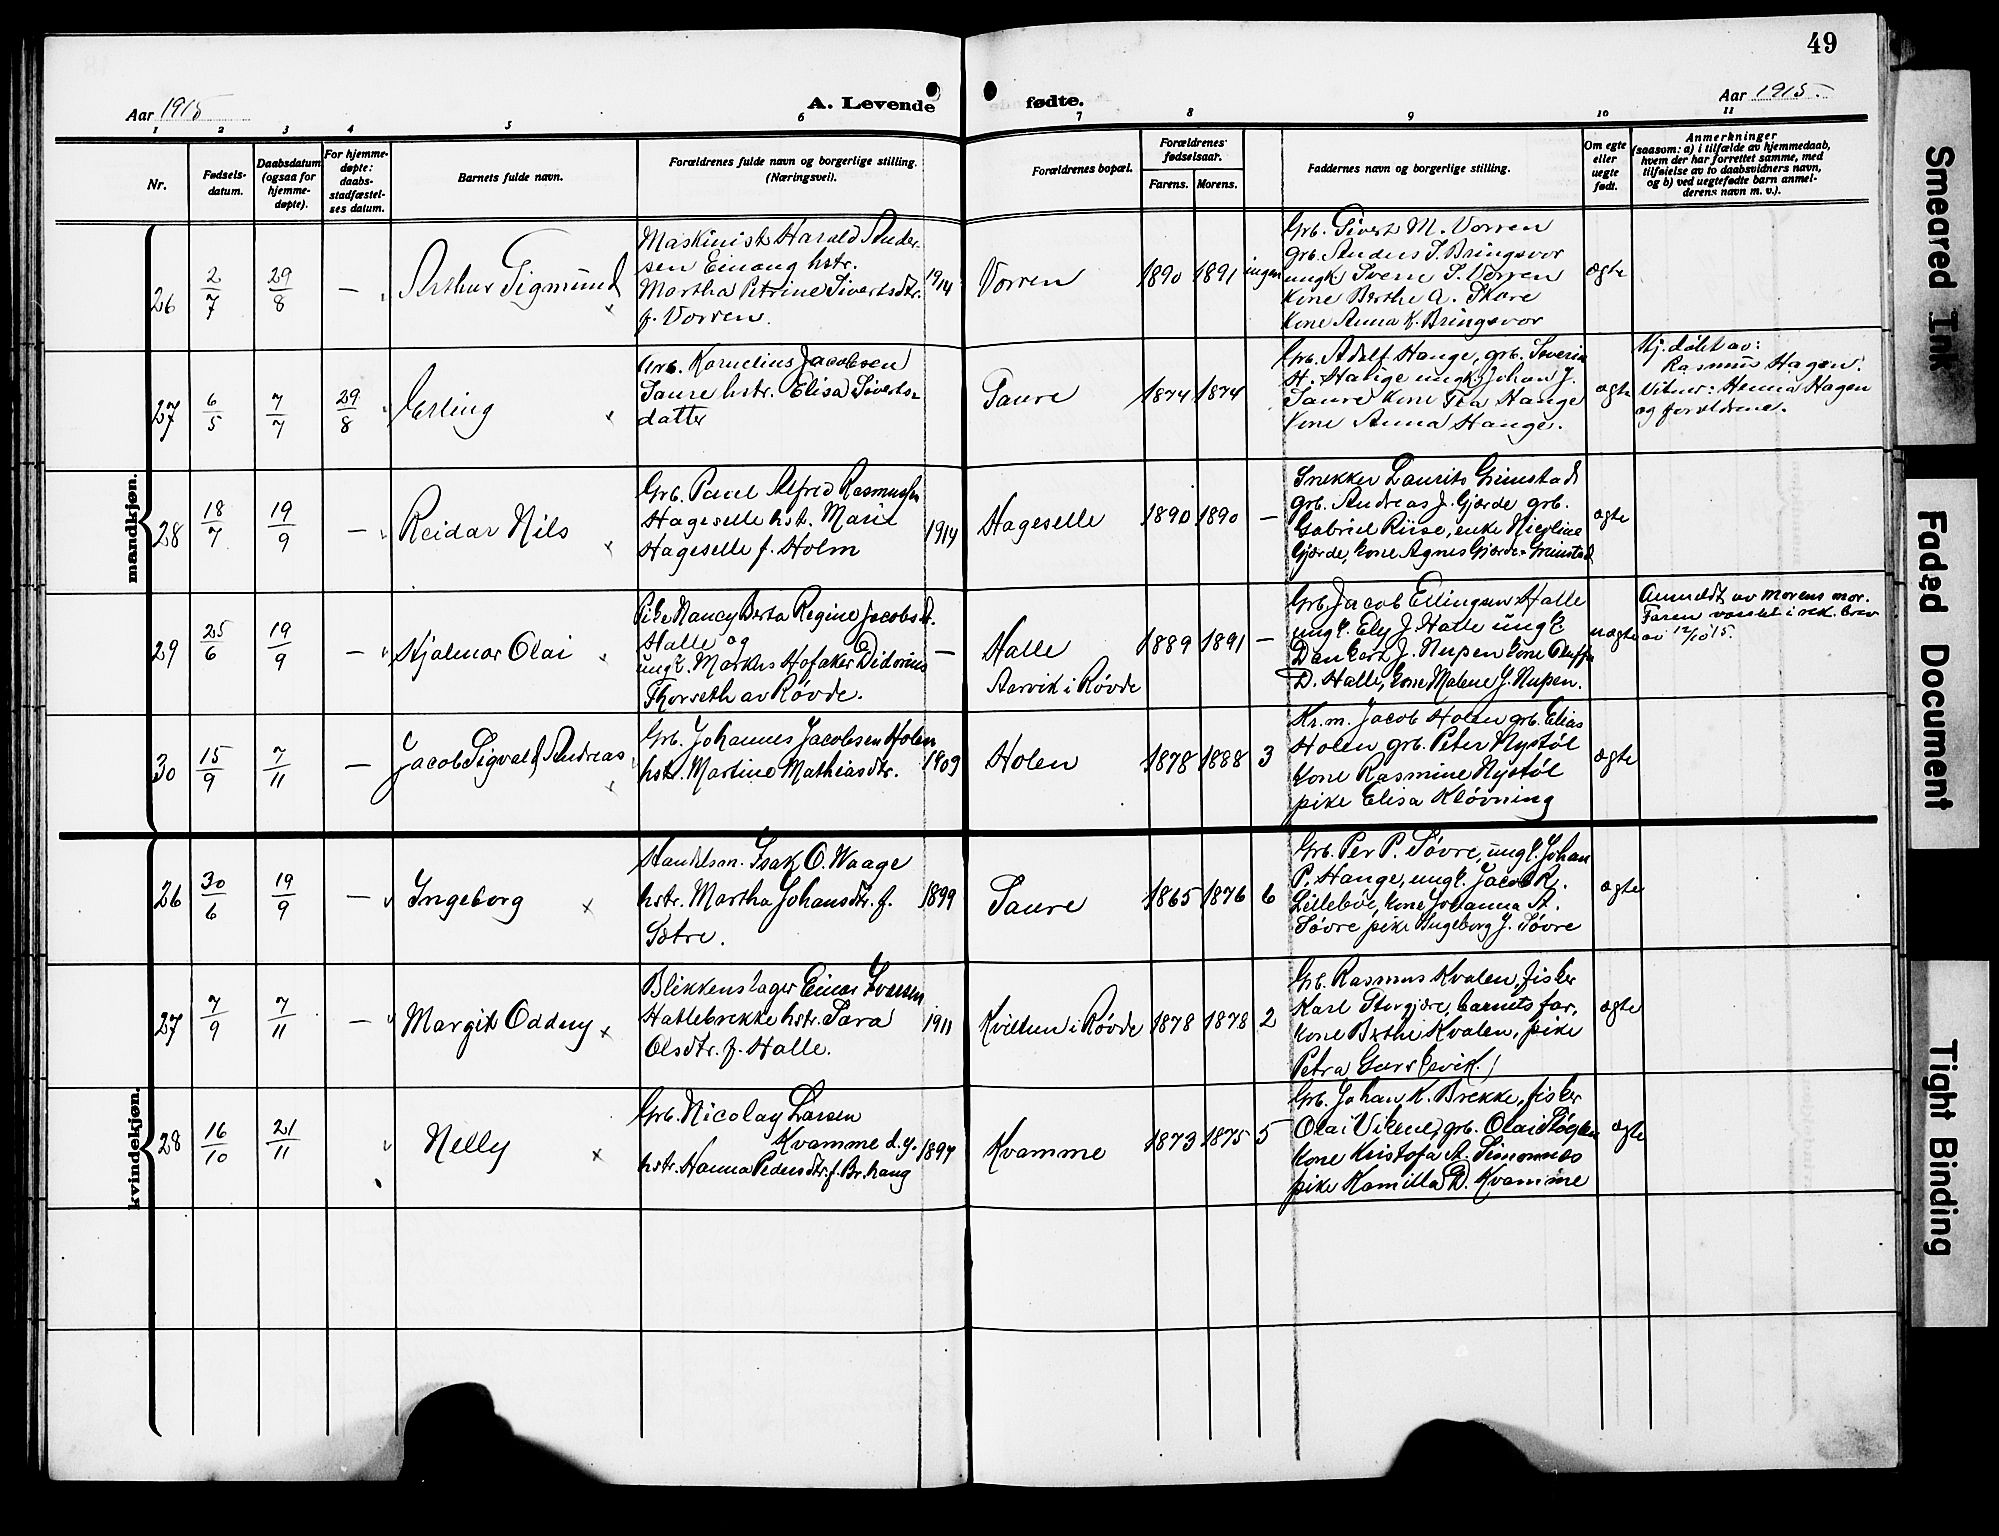 49
Aar 1915
A. Levende fødte.
Aar 1915
1 2 3 4 5 6 7 8 9 10 11
Nr.
Fødsels-
datum.
Daabsdatum
(ogsaa for
hjemme-
døpte).
For hjemme-
døpte:
daabs-
stadfæstel-
ses datum.
Barnets fulde navn.
Forældrenes fulde navn og borgerlige stilling.
(Næringsvei).
Forældrenes bopæl.
Forældrenes
fødselsaar.
Farens. Morens.
Faddernes navn og borgerlige stilling.
Om egte
eller
uegte
født.
Anmerkninger
(saasom: a) i tilfælde av hjemmedaab,
hvem der har forrettet samme, med
tilføielse av to daabsvidners navn,
og b) ved uegtefødte barn anmel-
derens navn m. v.).
mandkjøn.
26 2/7 29/8 — Arthur Sigmund
Maskinist Harald Ander-
sen Einang hstr.
Martha Petrine Sivertsdtr.
f. Vorren.
1914 Vorren 1890 1891 ingen
Grb. Sivert M. Vorren
grb. Anders S. Bringsvor
ungk. Sverre S. Vorren
kone Berthe A. Skare
kone Anna K. Bringsvor
ægte
27 6/5 7/7 29/8 Erling
Grb. Kornelius Jacobsen
Saure hstr. Elisa Siverts-
datter
Saure 1874 1874
Grb. Adolf Hauge, grb. Severin
H. Hauge ungk. Johan J.
Saure kone Hauge
kone Anna Hauge.
ægte
Hj. døbt av:
Rasmus Hagen.
Vitner: Henna Hagen
og forældrene.
28 18/7 19/9 — Reidar Nils
Grb. Paul Alfred Rasmussen
Hageselle hst. Marie
Hageselle f. Holm
1914 Hageselle 1890 1890 —
Snekker Laurits Grimstad
grb. Andreas J. Gjærde grb.
Gabriel Riise, enke
Gjærde, kone Agnes Gjærde Grimstad
ægte
29 25/6 19/9 — Hjalmar Olai
Pike Nancy Berta Regine Jacobsd.
Halle og
ungk. Markus Hofaker Didorius
Thorseth av Røvde.
— Halle
Aarvik i Røvde
1889 1891 —
Grb. Jacob Ellingsen Halle
ungk. Ely J. Halle ungk.
Dankert J. Nupen kone
D. Halle, kone Malene J. Nupen.
uægte
Anmeldt av morens mor.
Faren varslet i rek. brev
av 12/10 15.
30 15/9 7/11 — Jacob Sigvald Andreas
Grb. Johannes Jacobsen Holen
hstr. Martine Mathiasdtr.
1909 Holen 1878 1888 3
Kr.m. Jacob Holen grb. Elias
Holen grb. Peter Nystøl
kone Rasmine Nystøl
pike Elisa Kløvning
ægte
kvindekjøn.
26 30/6 19/9 — Ingeborg
Handelsm. Isak O. Waage
hstr. Martha Johansdtr. f.
Sætre.
1899 Saure 1865 1876 6
Grb. Per P. Søvre, ungk. Johan
P. Hauge, ungk. Jacob R.
Lillebø, kone Johanna A.
Søvre pike Ingeborg J. Søvre
ægte
27 7/9 7/11 — Margit Oddny
Blikkenslager Einar Iversen
Hallebrekke hstr. Sara
Olsdtr. f. Halle.
1911 Kviltun i Røvde 1878 1878 2
Grb. Rasmus Kvalen, fisker
Karl Storgjære, barnets far,
kone Berthe Kvalen, pike
Petra Gurskevik.
ægte
28 16/10 21/11 Nelly
Grb. Nicolay Larsen
Kvamme d.y.
hstr. Hanna Pedersdtr. f. Br. haug
1897 Kvamme 1873 1875 5
Grb. Johan K. Brekke, fisker
Olai Vikene, grb. Olai
kone Kristofa A. Simonnes
pike Kamilla D. Kvamme
ægte
Smeared Ink
Faded Document
Tight Binding